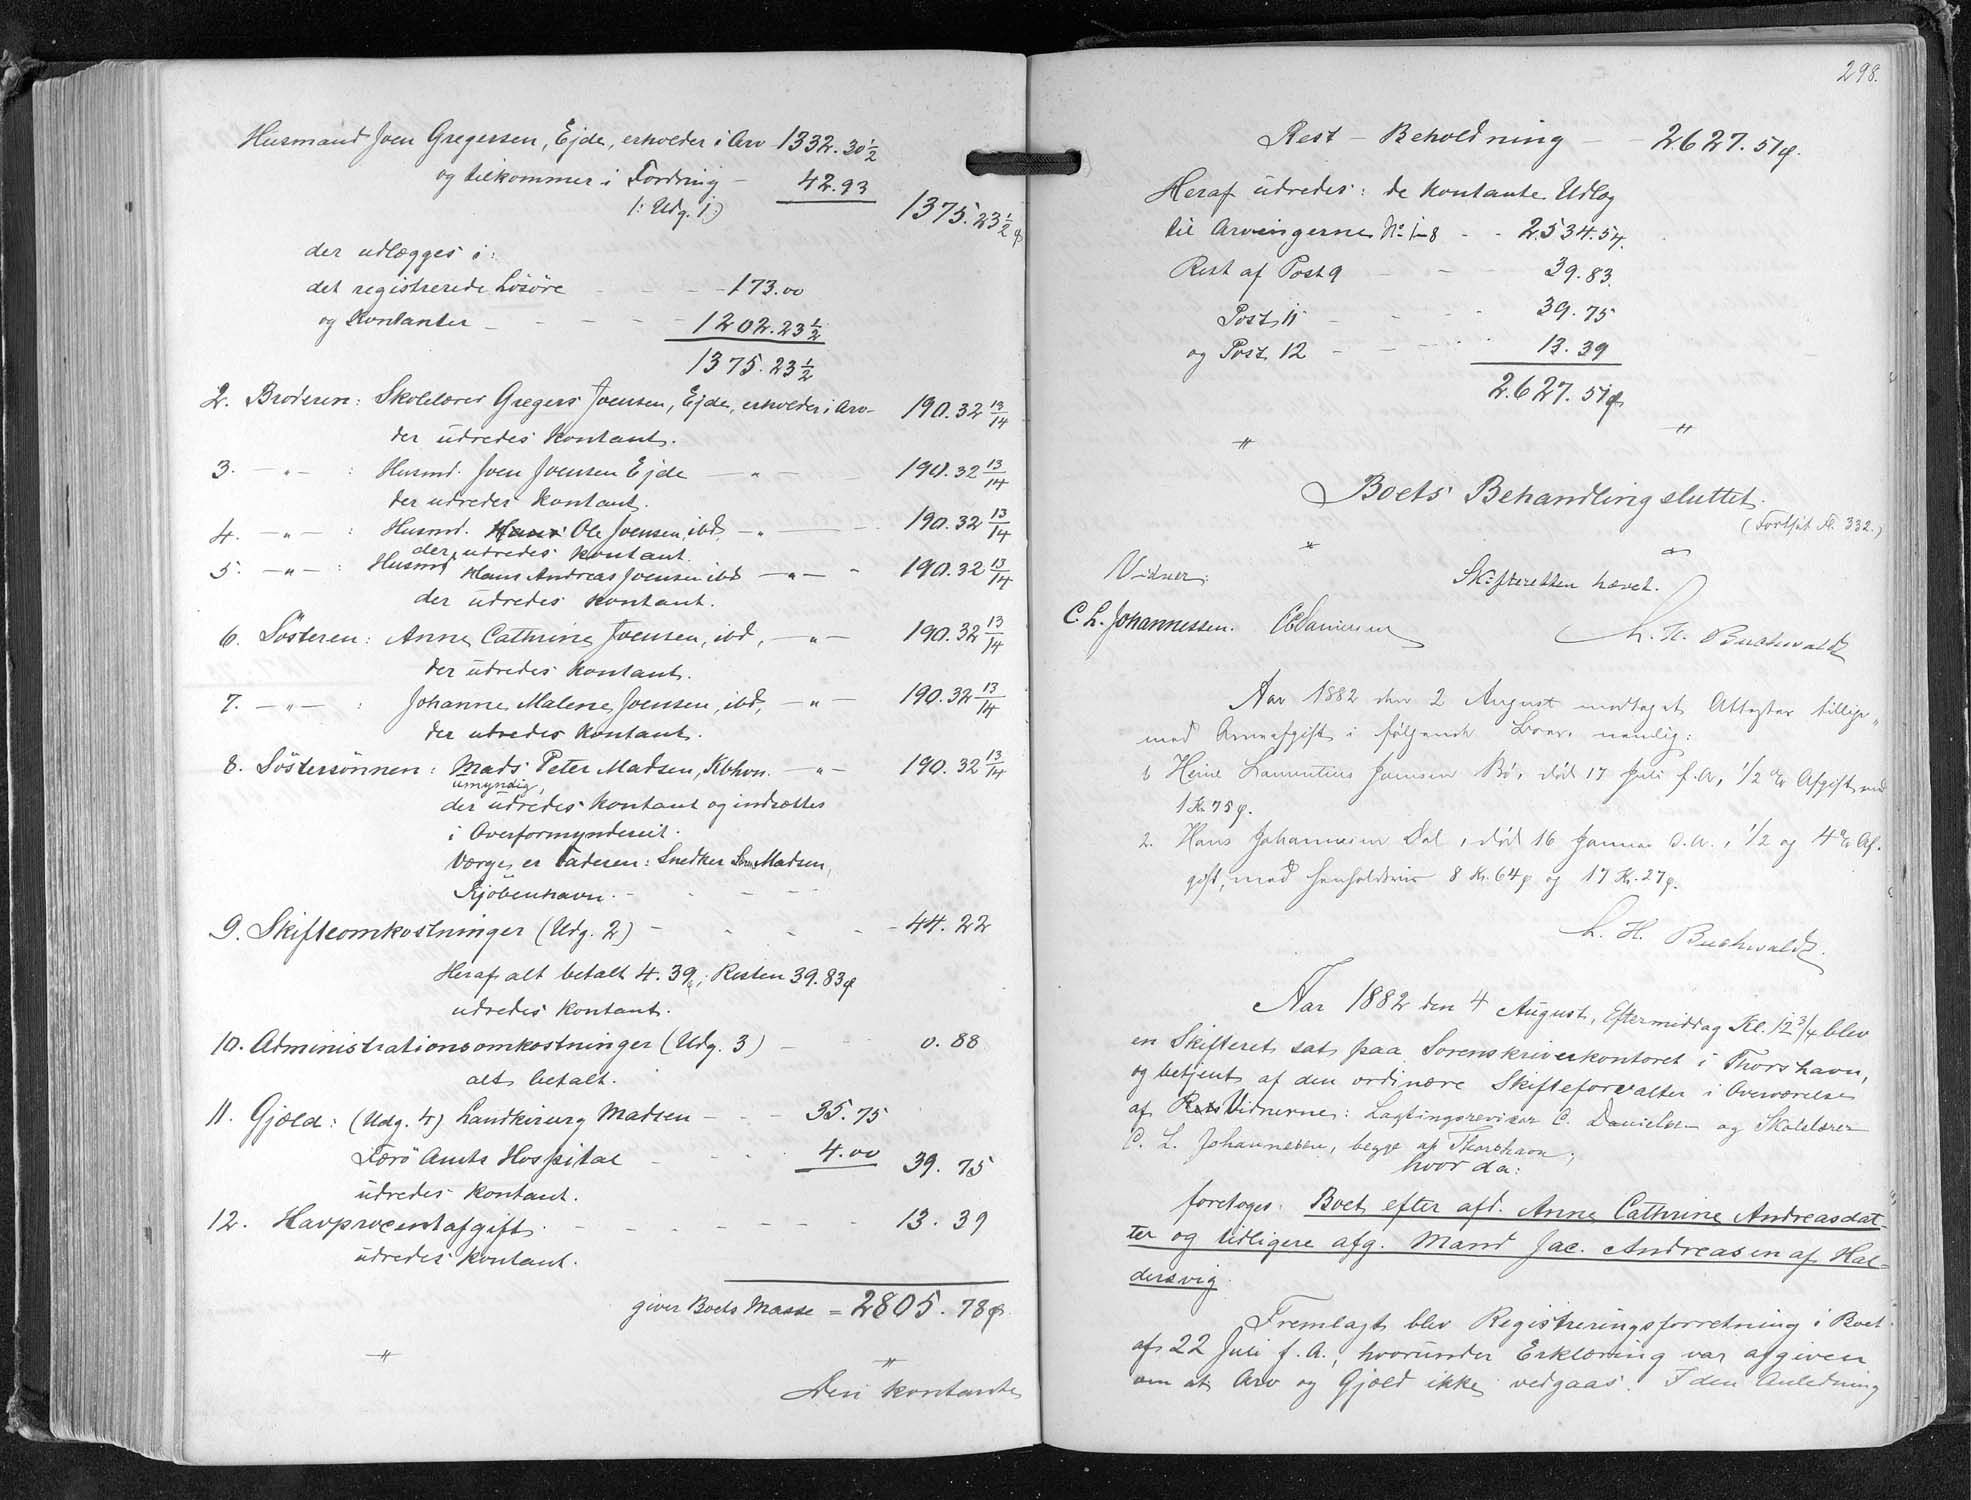 Husmand Joen Gregersen, Ejde, erholder i Arv 1332.30½
og tilkommer i Fordring – 42.93
(: Udg. 1:) 1375.23½ ø
der udlægges i:
det registrerede Løsöre – – – 173.00
og Kontanter – – – – 1202.23½
1375.23½
2. Broderen: Skolelærer Gregers Joensen, Ejde, erholder i Arv – 190.32 13/14
der üdredes kontant.
3. – „ – : Husmd. Joen Joensen Ejde – „ – 190.32 13/14
der udredes kontant.
4. – „ – : Husmd. Ole Joensen, ibd. – „ – 190.32 13/14
der üdredes kontant.
5. – „ – : Husmd Hans Andreas Joensen ibd – „ – 190.32 13/14
der üdredes kontant.
6. Søsteren: Anne Cathrine Joensen, ibd, – „ – 190.32 13/14
der üdredes kontant.
7. – „ – : Johanne Malene Joensen, ibd, – „ – 190.32 13/14
der udredes kontant.
8. Söstersönnen: Mads Peter Madsen, Kbhvn. – „ – 190.32 13/14
umyndig,
der üdredes kontant og indsættes
i Overformynderiet.
Værge er Faderen: Snedker Madsen,
Kjöbenhavn. – – –
9. Skifteomkostninger (Udg. 2) – – – 44.22
Heraf alt betalt 4.39, Resten 39.83 ø
udredes kontant.
10. Administrationsomkostninger (Udg. 3) – 0.88
alt betalt.
11. Gjæld: (Udg. 4) Landkirurg Madsen – – 35.75
Færö Amts Hospital – – 4.00 39.75
üdredes kontant.
12. Halvprocentafgift. – – – – – 13.39
üdredes kontant.
giver Boets Masse = 2805.78 ø.
„ „
Den kontante
298.
Rest – Beholdning – – 2627.51 ø.
Heraf üdredes: de kontante Udlæg
til Arvingerne No 1–8 – – 2534.54.
Rest af Post 9 – – 39.83.
Post 11 – – – 39.75
og Post 12 – – – 13.39
2627.51 ø
„ „
Boets Behandling sluttet.
(Fortsat Fol. 332.)
„ „
Vidner: Skifteretten hævet.
C. L. Johannessen. C Danielsen L. H. Buchwaldt
Aar 1882 den 2 August modtaget Attester tillige„
med Arveafgift i følgende Boer, nemlig:
1 Heine Laurentius Jamsen Bø, død 17 Juli f. A, 1/2 % Afgift med
1 Kr 75 ø.
2. Hans Johannesen Dal, død 16 Januar d. A., 1/2 og 4 % Af-
gift, med henholdsvis 8 Kr. 64 ø og 17 Kr. 27 ø.
L. H. Buchwaldt.
Aar 1882 den 4 August, Eftermiddag Kl. 12 3/4 blev
en Skifteret sat paa Sorenskriverkontoret i Thorshavn,
og betjent af den ordinære Skifteforvalter i Overværelse
af Vidnerne: Lagtingsrevisor C. Danielsen og Skolelærer
C. L. Johannesen, begge af Thorshavn;
hvor da:
foretoges: Boet efter afd. Anne Cathrine Andreasdat-
ter og tidligere afg. Mand Jac. Andreasen af Hal-
dersvig.
Fremlagt blev Registreringsforretning i Boet
af 22 Juli f. A., hvorunder Erklæring var afgiven
om at Arv og Gjæld ikke vedgaas. I den Anledning